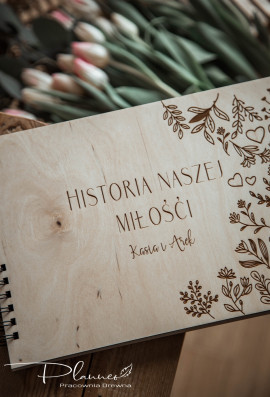 HISTORIA NASZEJ
MIŁOŚCI
Kasia i Arek
Planneo
Pracownia Drewna